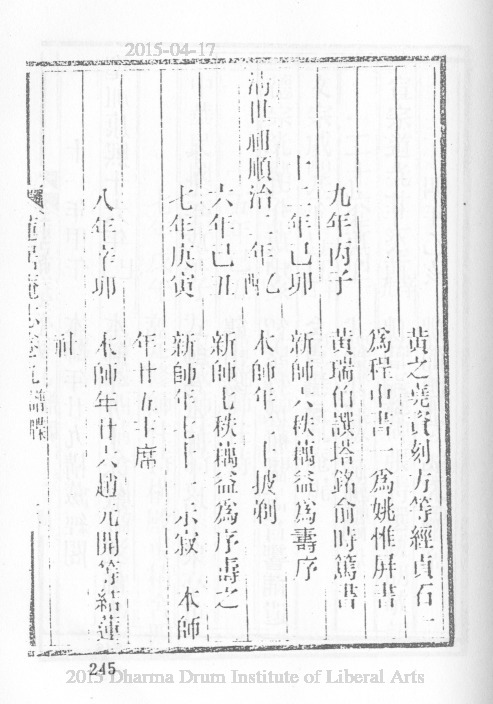 2015-04-17
黃之堯資刻方等經貞石一
爲程中書一爲姚惟屏書
九年丙子 黃瑞伯譔塔銘俞時篤書
十二年己卯 新師六秩藕益爲壽序
清世祖順治二年乙酉 本師年二十披剃
六年己丑 新師七秩藕益爲序壽之
七年庚寅 新師年七十一示寂 本師
年廿五十席
八年辛卯 本師年廿六趙元開等結蓮
社
蓮居庵志卷九譜牒
245
2015 Dharma Drum Institute of Liberal Arts